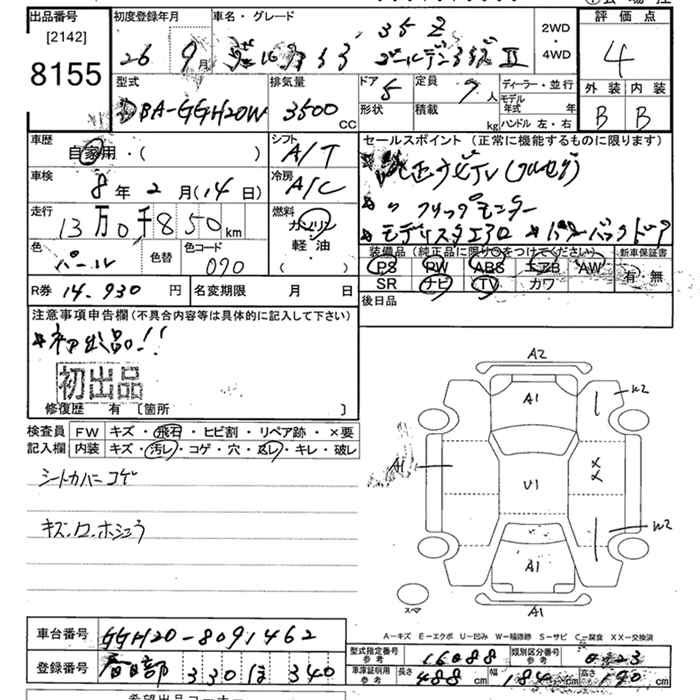 出品番号
[2142]
8155
初度登録年月
26 9月
車名・グレード
35 Z
ゴールデンアイズ II
2WD・4WD
評価点
4
型式
DBA-GGH20W
排気量
3500 CC
ドア 5
形状
定員 7人
積載 kg
ディーラー・並行
モデル年式 年
ハンドル 左・右
外装 内装
B B
車歴
自家用・( )
シフト
A/T
車検
8年2月(14日)
冷房
A/C
走行
13万0千850km
燃料
ガソリン
軽・油
( )
色
パール
色替
色コード
070
R券 14.930円
名変期限 月 日
セールスポイント (正常に機能するものに限ります)
★純正ナビTV (フルセグ)
★〃 フリップモニター
★モデリスタエアロ ★パワーバックドア
装備品 (純正品に限り○をつけてください)
PS PW ABS エアB AW
SR ナビ TV カワ
新車保証書
有・無
後日品
注意事項申告欄 (不具合内容等は具体的に記入して下さい)
★初出品!!
初出品
修復歴 有 [箇所 ]
検査員記入欄
FW キズ・飛石・ヒビ割・リペア跡・×要
内装 キズ・汚レ・コゲ・穴・スレ・キレ・破レ
シートカバーコゲ
A2
A1
W2
A1
U1
××
W2
A1
スマ
A1
A-キズ E-エクボ U-凹み W-補修跡 S-サビ C-腐食 XX-交換済
車台番号 GGH20-8091462
登録番号 春日部 330 ほ 340
型式指定番号 参考 16088
類別区分番号 参考 0223
車庫証明用 参考 長さ 488cm 幅 184cm 高さ 190cm
希望出品コーナー